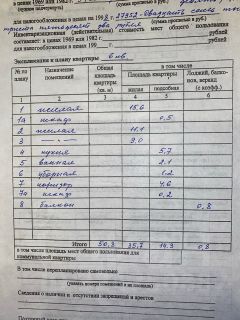 в ценах 1969 или 1982 г.
(сумма прописью в руб.)
для налогообложения в ценах на 1998 г. 27852 - двадцать семь
(сумма прописью в руб.)
Инвентаризационная (действительная) стоимость мест общего пользования
составляет: в ценах 1969 или 1982 г. рублей
для налогообложения в ценах 199 г. рублей
Экспликация к плану квартиры 6 кв.
№ по плану
Назначение помещений
Общая площадь квартиры (кв. м)
в том числе
Площадь квартиры
жилая
подсобная
Лоджий, балконов, веранд (с коэфф.)
1 2 3 4 5 6
1 жилая 15,6
1а шкаф 0,5
2 жилая 11,1
3 —"— 9,0
4 кухня 5,7
5 ванная 2,1
6 уборная 1,2
7 коридор 4,6
7а шкаф 0,2
8 балкон 0,8
Итого 50,8 35,7 14,3 0,8
в том числе площадь мест общего пользования для
коммунальной квартиры
В том числе перепланировано самовольно
(указать номера помещений и их площади)
Сведения о наличии и отсутствии запрещений и арестов